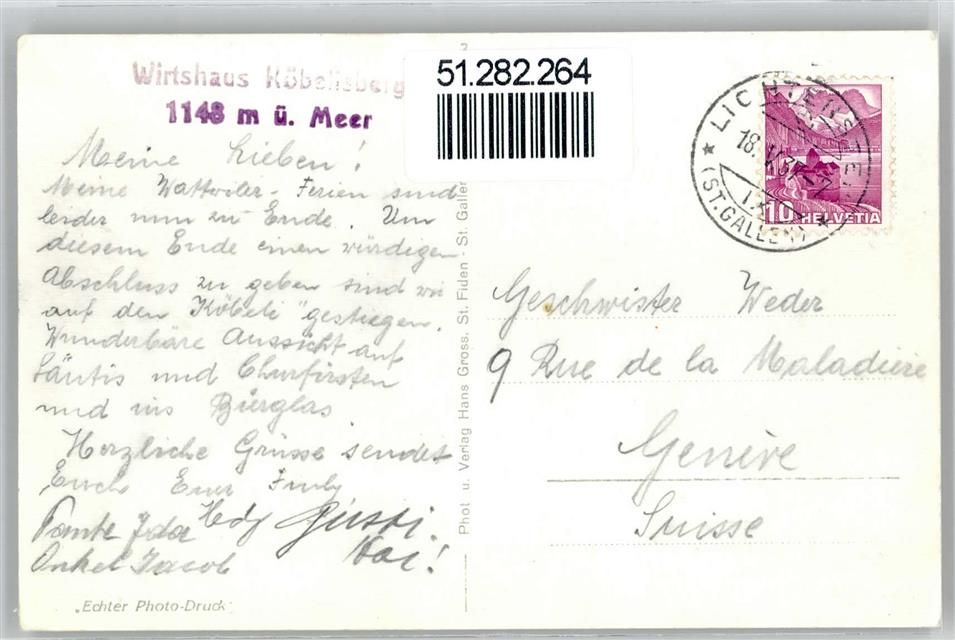 Wirtshaus Köbelisberg
1148 m ü. Meer
51.282.264
LICHTENSTEIG
18. V. 37
(ST. GALLEN)
10 HELVETIA
Meine Lieben!
Meine Wattwiler-Ferien sind
leider nun zu Ende. Um
diesem Ende einen würdigen
Abschluss zu geben sind wir
auf den "Köbeli" gestiegen.
Wunderbare Aussicht auf
Säntis und Churfirsten
und ins Bierglas
Herzliche Grüsse sendet
Euch Euer
Tante Ida Hedy Gusti.
Onkel Jacob
"Echter Photo-Druck"
Phot u. Verlag Hans Gross. St. Fiden - St. Gallen
Geschwister Weder
9 Rue de la Maladière
Genève
Suisse